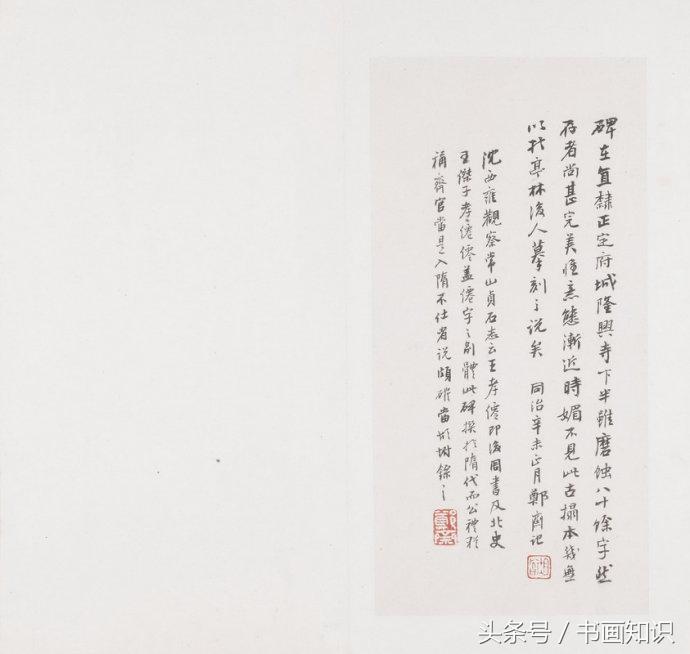 碑在直隸正定府城隆興寺下半雖磨蝕八十餘字然
存者尚甚完美惟意態漸近時媚不見此古搨本幾無
以折亭林後人摹刻之說矣 同治辛未正月鄭齋記
沈西雍觀察常山貞石志云王孝僊即後周書及北史
王傑子孝僊僊蓋僊字之別體此碑撰於隋代而公禮猶
稱齊官當是入隋不仕者說頗確當故坿錄之
头条号 / 书画知识